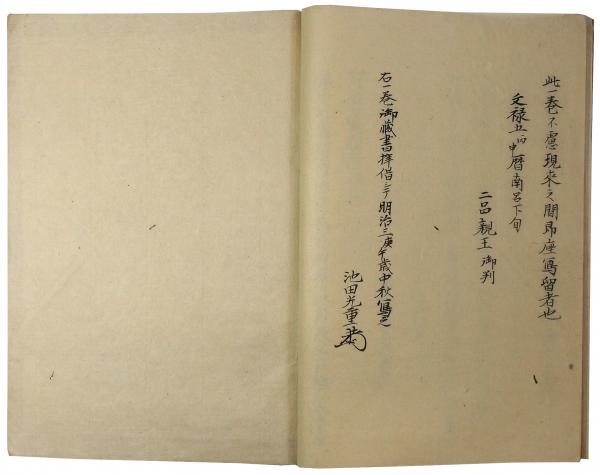 此一巻不慮現来之間即座写留者也
文禄五丙申暦南呂下旬
二品親王御判
右一巻御蔵書拝借シテ明治三庚午歳中秋写之
池田光重